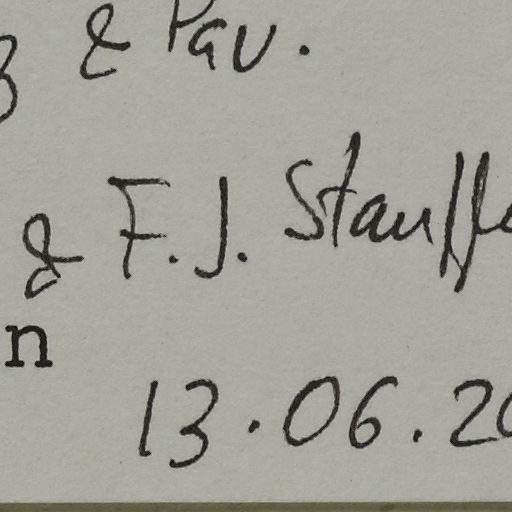 & Pav.
& F. J. Stauffe
n
13.06.20